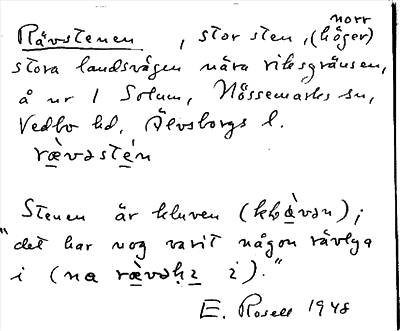 norr
Rävstenen, stor sten, (höger)
stora landsvägen nära riksgränsen,
å nr 1 Solum, Nössemarks sn,
Vedbo hd, Älvsborgs l.
rævəstén
Stenen är kluven (kḷọ̀vən);
"det har nog varit någon rävlya
i (na rævəhı i)."
E. Rosell 1948